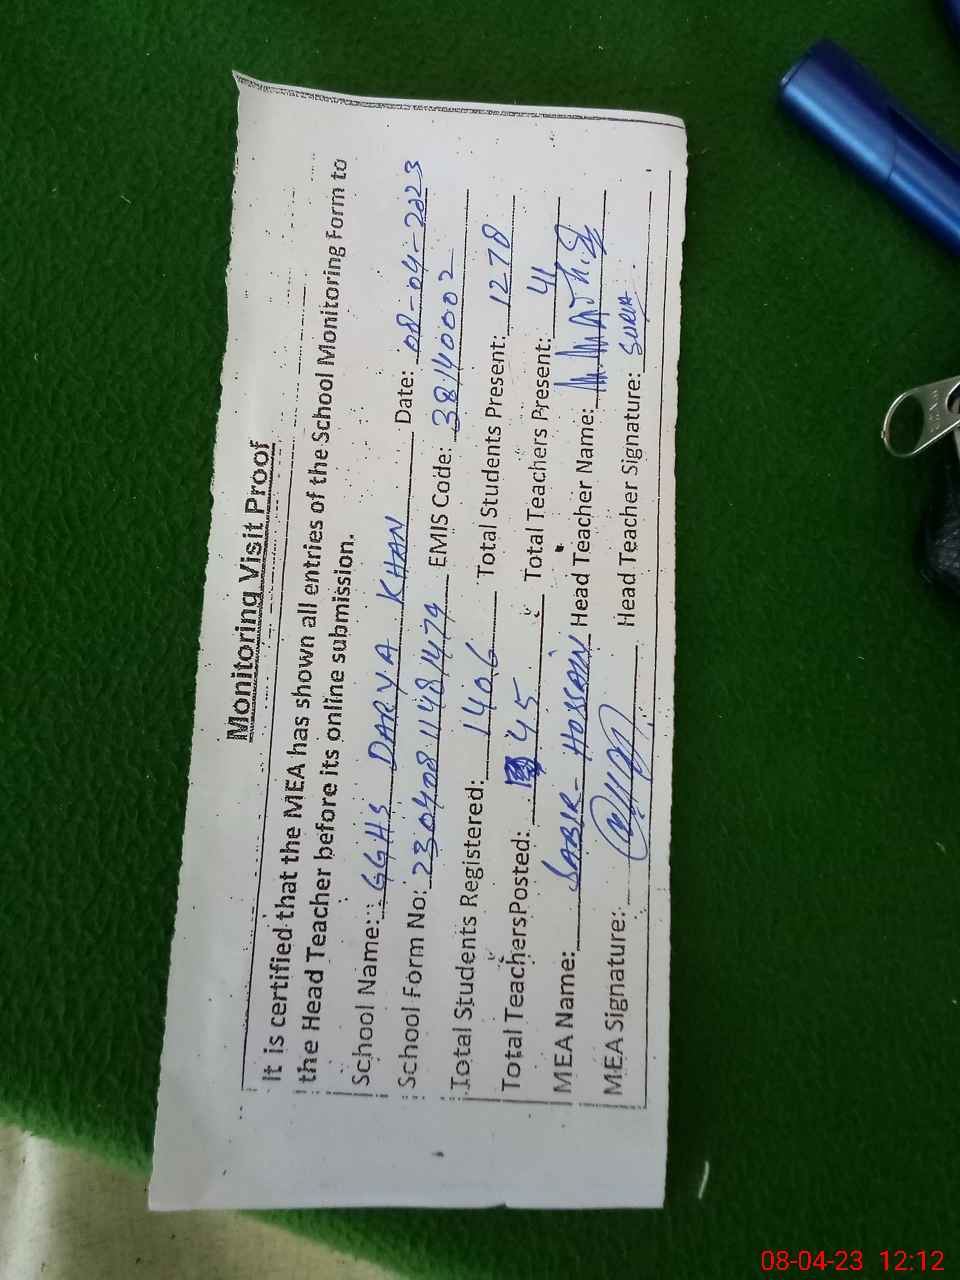 Monitoring Visit Proof
It is certified that the MEA has shown all entries of the School Monitoring Form to
the Head Teacher before its online submission.
School Name: GGHS DARYA KHAN Date: 08-04-2023
School Form No: 23040811481474 EMIS Code: 38140002
Total Students Registered: 1406 Total Students Present: 1278
Total TeachersPosted: 45 Total Teachers Present: 41
MEA Name: SABIR-HUSSAIN Head Teacher Name:
MEA Signature: Head Teacher Signature:
08-04-23 12:12